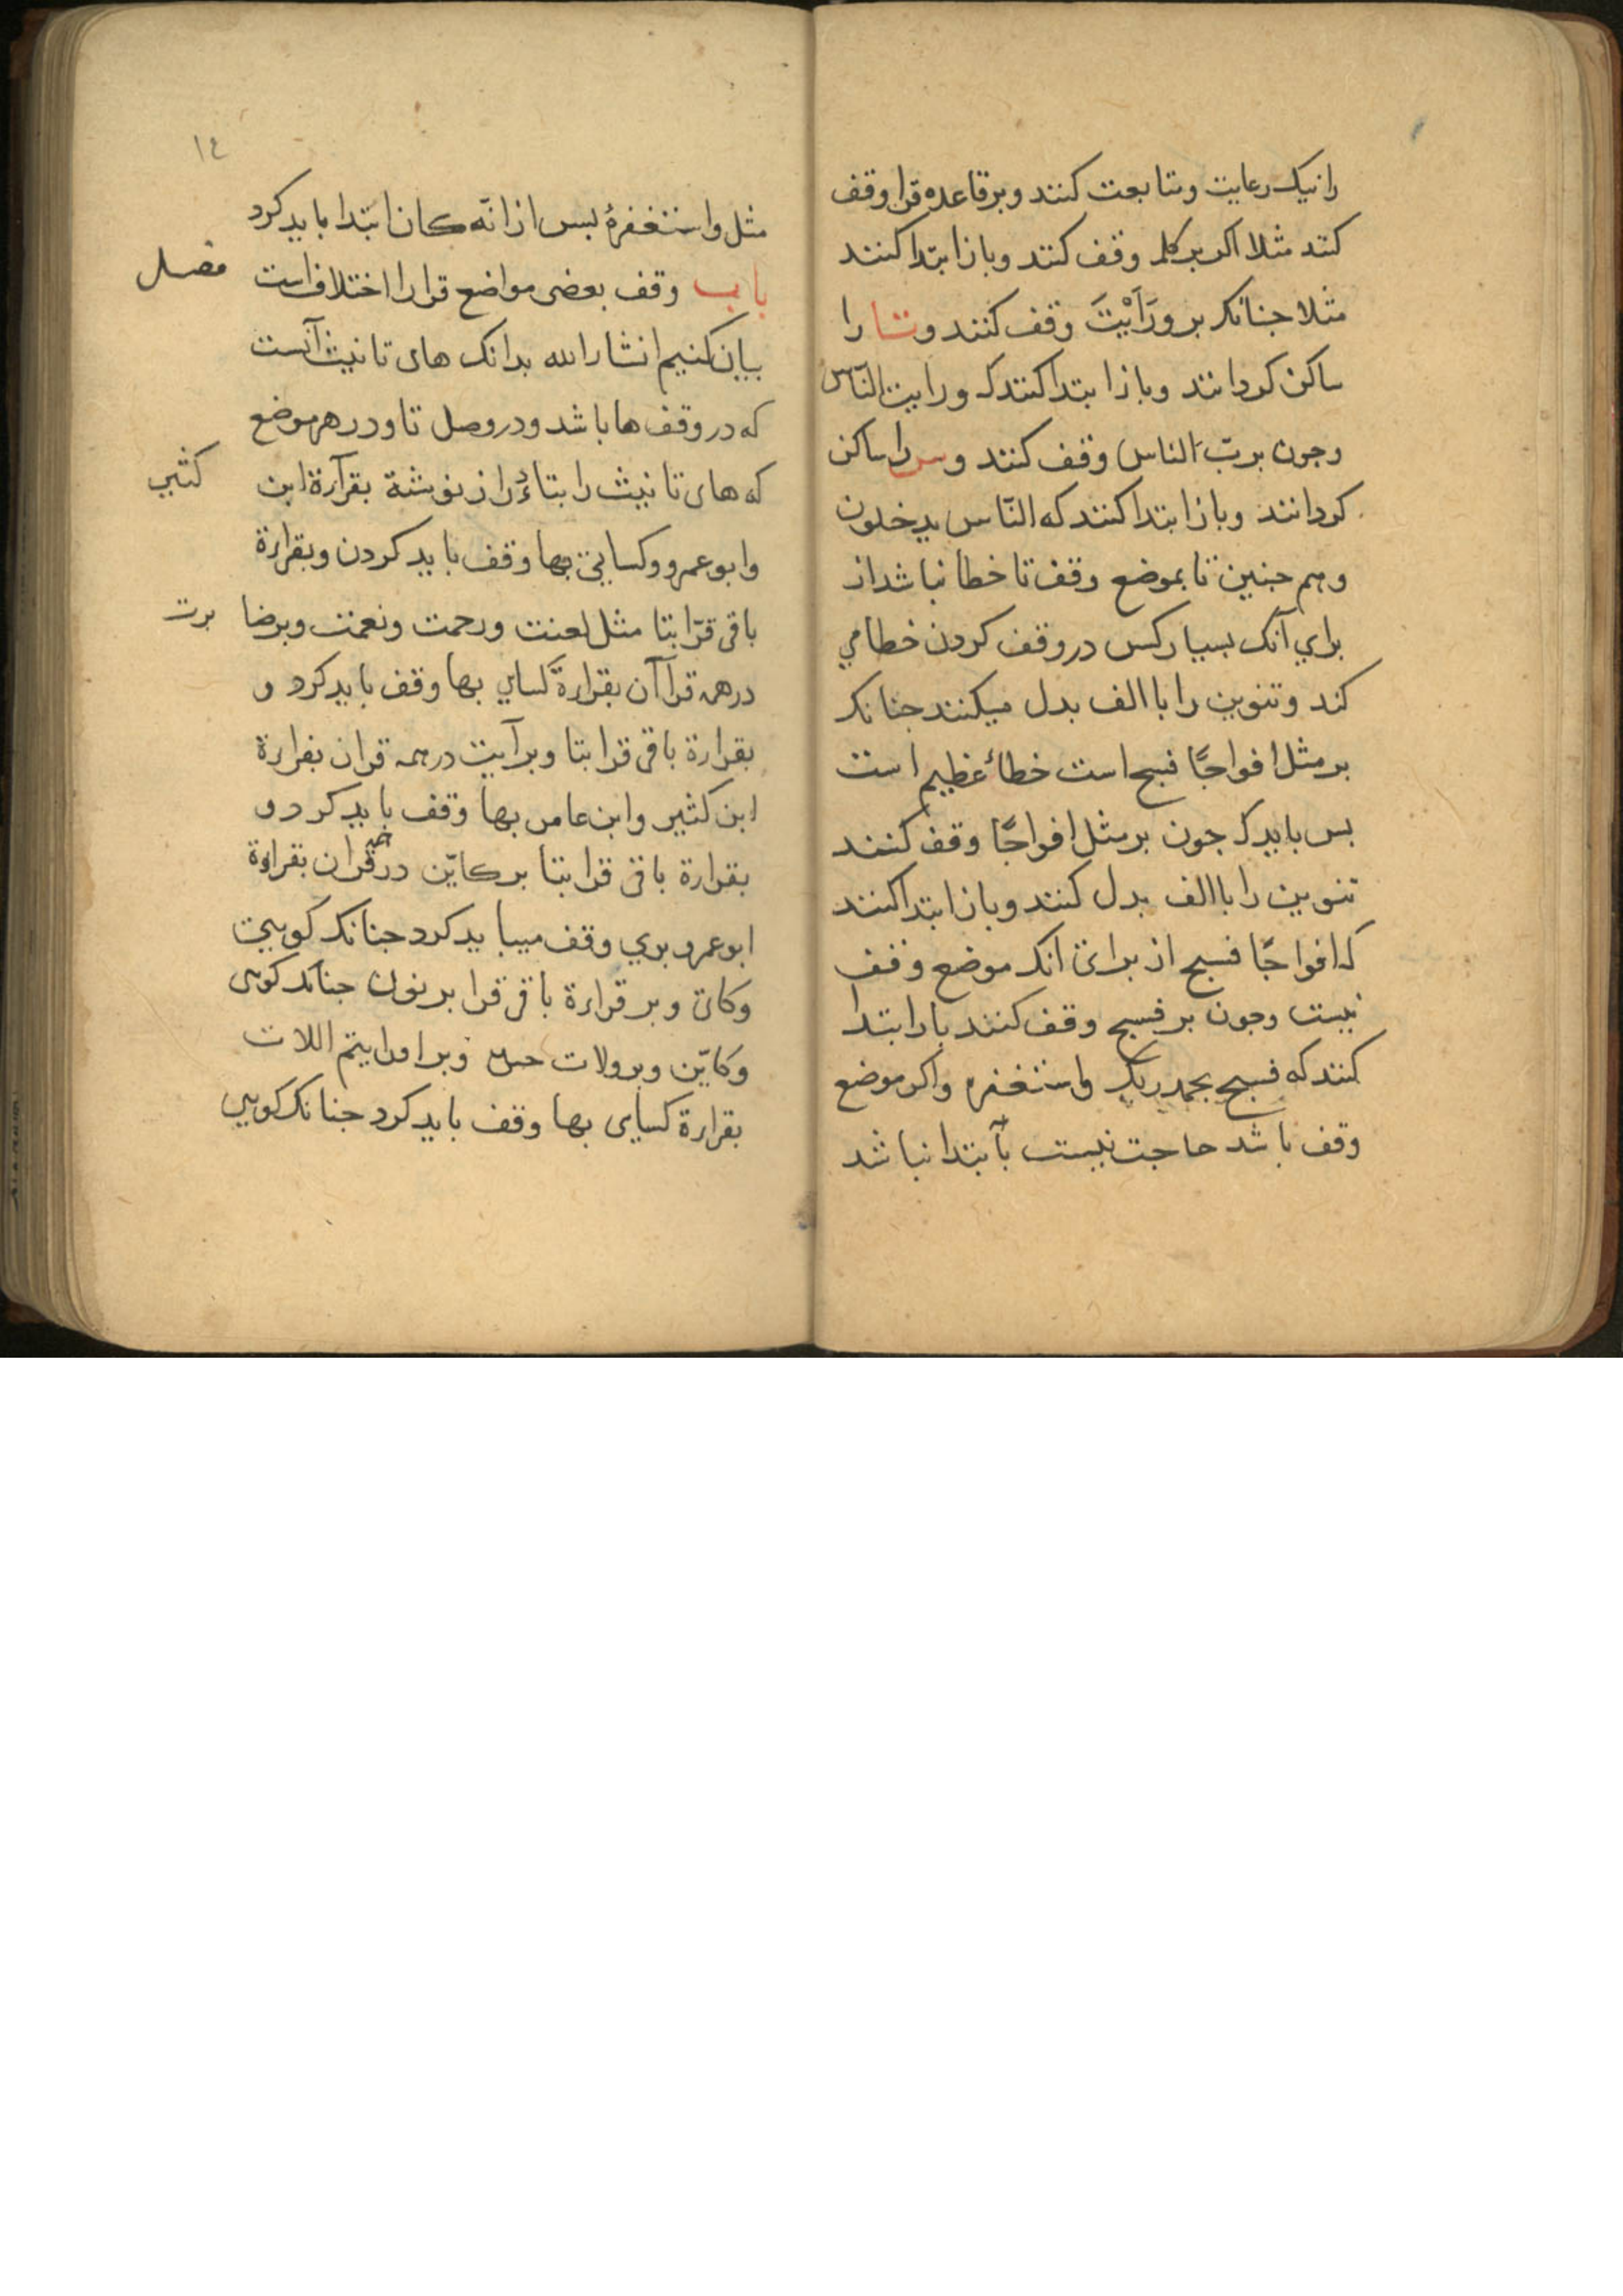 را نیک رعایت و متابعت کنند و بر قاعده قرا وقف
کنند مثلا اکر بر کلمه وقف کنند و باز ابتدا کنند
مثلا جنانکه بر وَرَاَیْتَ وقف کنند و تا را
ساکن کردانند و باز ابتدا کنند که ورایت النّاس
و جون بر رایت الناس وقف کنند و س را ساکن
کردانند و باز ابتدا کنند که النّاس یدخلون
و هم جنین تا بموضع وقف تا خطا نباشد از
براي آنک بسیار کس در وقف کردن خطا مي
کند و تنوین را با الف بدل میکنند جنانکه
بر مثل افواجًا فسبح است خطأ عظیم است
بس باید که جون بر مثل افواجًا وقف کنند
تنوین را با الف بدل کنند و باز ابتدا کنند
که افواجًا فسبح از برای انکه موضع وقف
نیست و جون بر فسبح وقف کنند باز ابتدا
کنند که فسبح بحمد ربک واستغفره و اکر موضع
وقف باشد حاجت نیست بآبتدا نباشد
١٤
مثل واستغفرهُ بس از انّه کان ابتدا باید کرد
باب وقف بعضی مواضع قرا را اختلاف است فصل
بیان کنیم انشار الله بدانک های تانیث آنست
که در وقف ها باشد و در وصل تا و در هر موضع
که های تانیث را بتاء دراز نوشتة بقرآرة ابن کثیر
وابو عمرو وکسایی بها وقف باید کردن وبقراءة
باقی قرّا بتا مثل لعنت ورحمت ونعمت وبرضا برت
در همه قراآن بقراءة کساي بها وقف باید کرد و
بقرارة باقی قرا بتا وبر آیت در همه قران بقراءة
ابن کثیر وابن عامر بها وقف باید کرد و
بقرارة باقی قرا بتا بر کایّن در همه قران بقراءة
ابو عمرو بري وقف میباید کرد جنانکه کویی
وکای وبر قراءة باقی قرا بر نون جنانکه کویی
وکایّن وبر ولات حین وبر افرایتم اللات
بقرارة کسایی بها وقف باید کرد جنانکه کویی